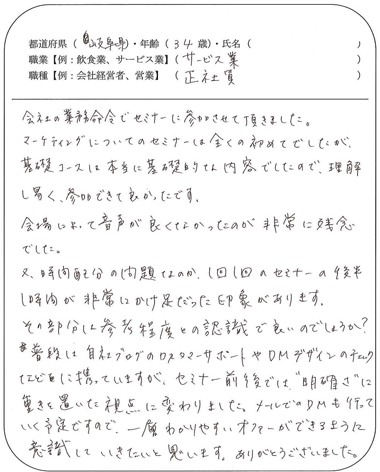 都道府県（岐阜県）・年齢（34歳）・氏名（　　　　　）
職業【例：飲食業、サービス業】（サービス業　　　　）
職種【例：会社経営者、営業】（正社員　　　　）
会社の業務命令でセミナーに参加させて頂きました。
マーケティングについてのセミナーは全くの初めてでしたが、
基礎コースは本当に基礎的な内容でしたので、理解
し易く、参加できて良かったです。
会場によって音声が良くなかったのが非常に残念
でした。
又、時間配分の問題なのか、1回1回のセミナーの後半
1時間が非常にかけ足だった印象があります。
その部分は参考程度との認識で良いのでしょうか？
普段は自社ブログのカスタマーサポートやDMデザインのチェック
などに携っていますが、セミナー前後では"明確さ"に
重きを置いた視点に変わりました。メールでのDMも行って
いく予定ですので、一層わかりやすいオファーができるように
意識していきたいと思います。ありがとうございました。